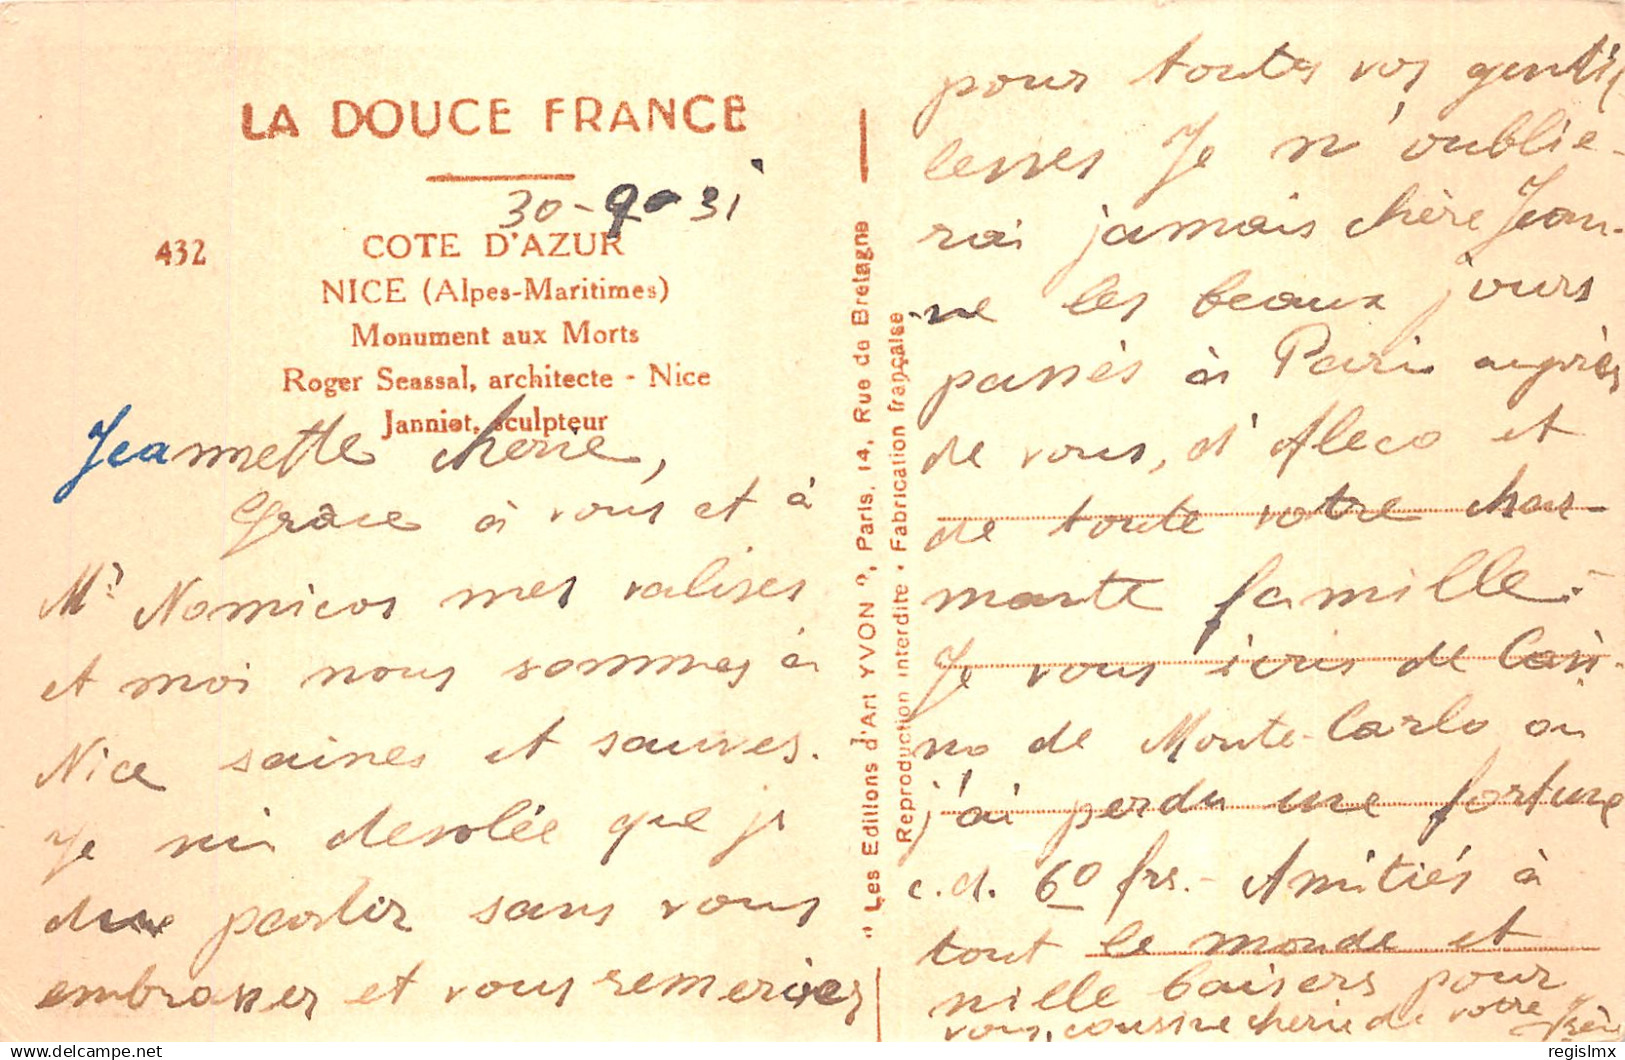 LA DOUCE FRANCE
30-9-31
432
COTE D'AZUR
NICE (Alpes-Maritimes)
Monument aux Morts
Roger Seassal, architecte - Nice
Janniot, sculpteur
Jeannette cherie,
Grâce à vous et à
Mr Nomicos mes valises
et moi nous sommes à
Nice saines et sauves.
Je suis desolée que je
dus partir sans vous
embrasser et vous remercier
"Les Editions d'Art YVON", Paris, 14, Rue de Bretagne
Reproduction interdite • Fabrication française
pour toutes vos gentil
lesses Je n'oublie-
rai jamais chère Jean-
ne les beaux jours
passés à Paris auprès
de vous, d'Aleco et
de toute votre char-
mante famille.-
Je vous écris de Casi-
no de Monte-Carlo où
j'ai perdu une fortune
c.d. 60 frs.- Amitiés à
tout le monde et
mille baisers pour
vous, cousine cherie de votre
regislmx